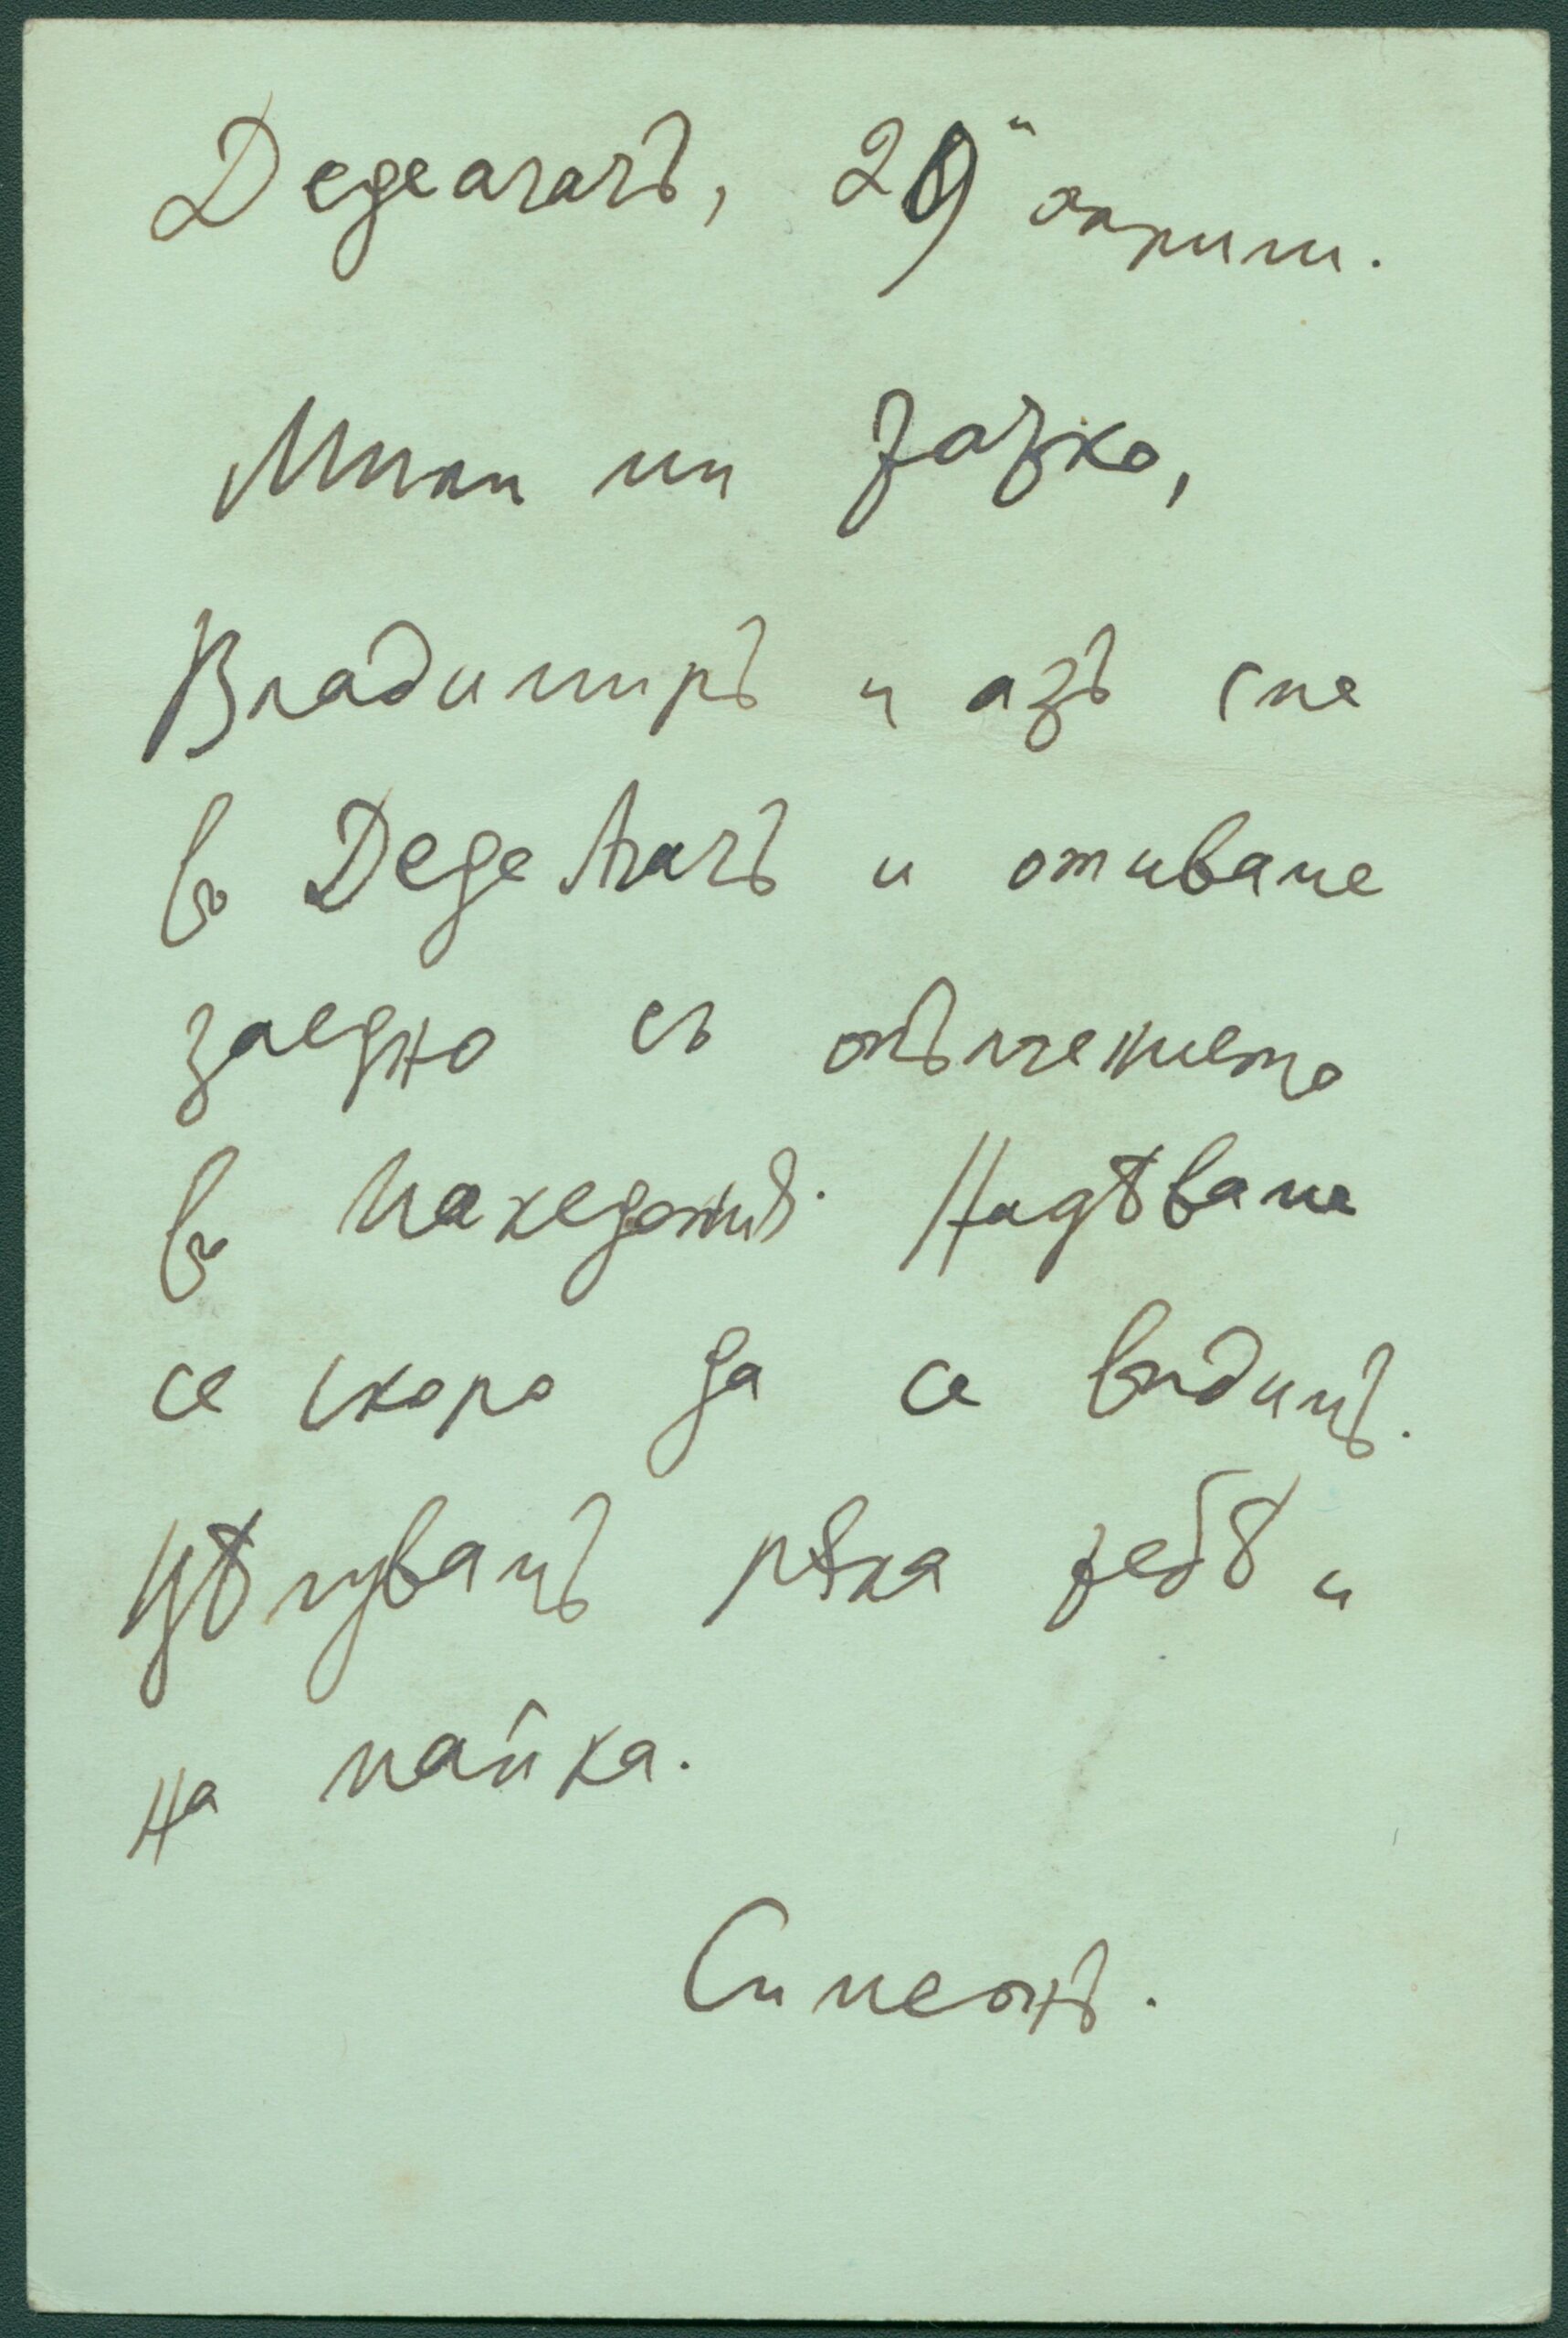 Дедеагачъ, 29й априли.
Мили ми татко,
Владимиръ и азъ сме
в Деде Агачъ и отиваме
заедно съ опълчението
в Македония. Надѣваме
се скоро да се видимъ.
Цѣлувамъ рѫка тебѣ и
на майка.
Симеонъ.